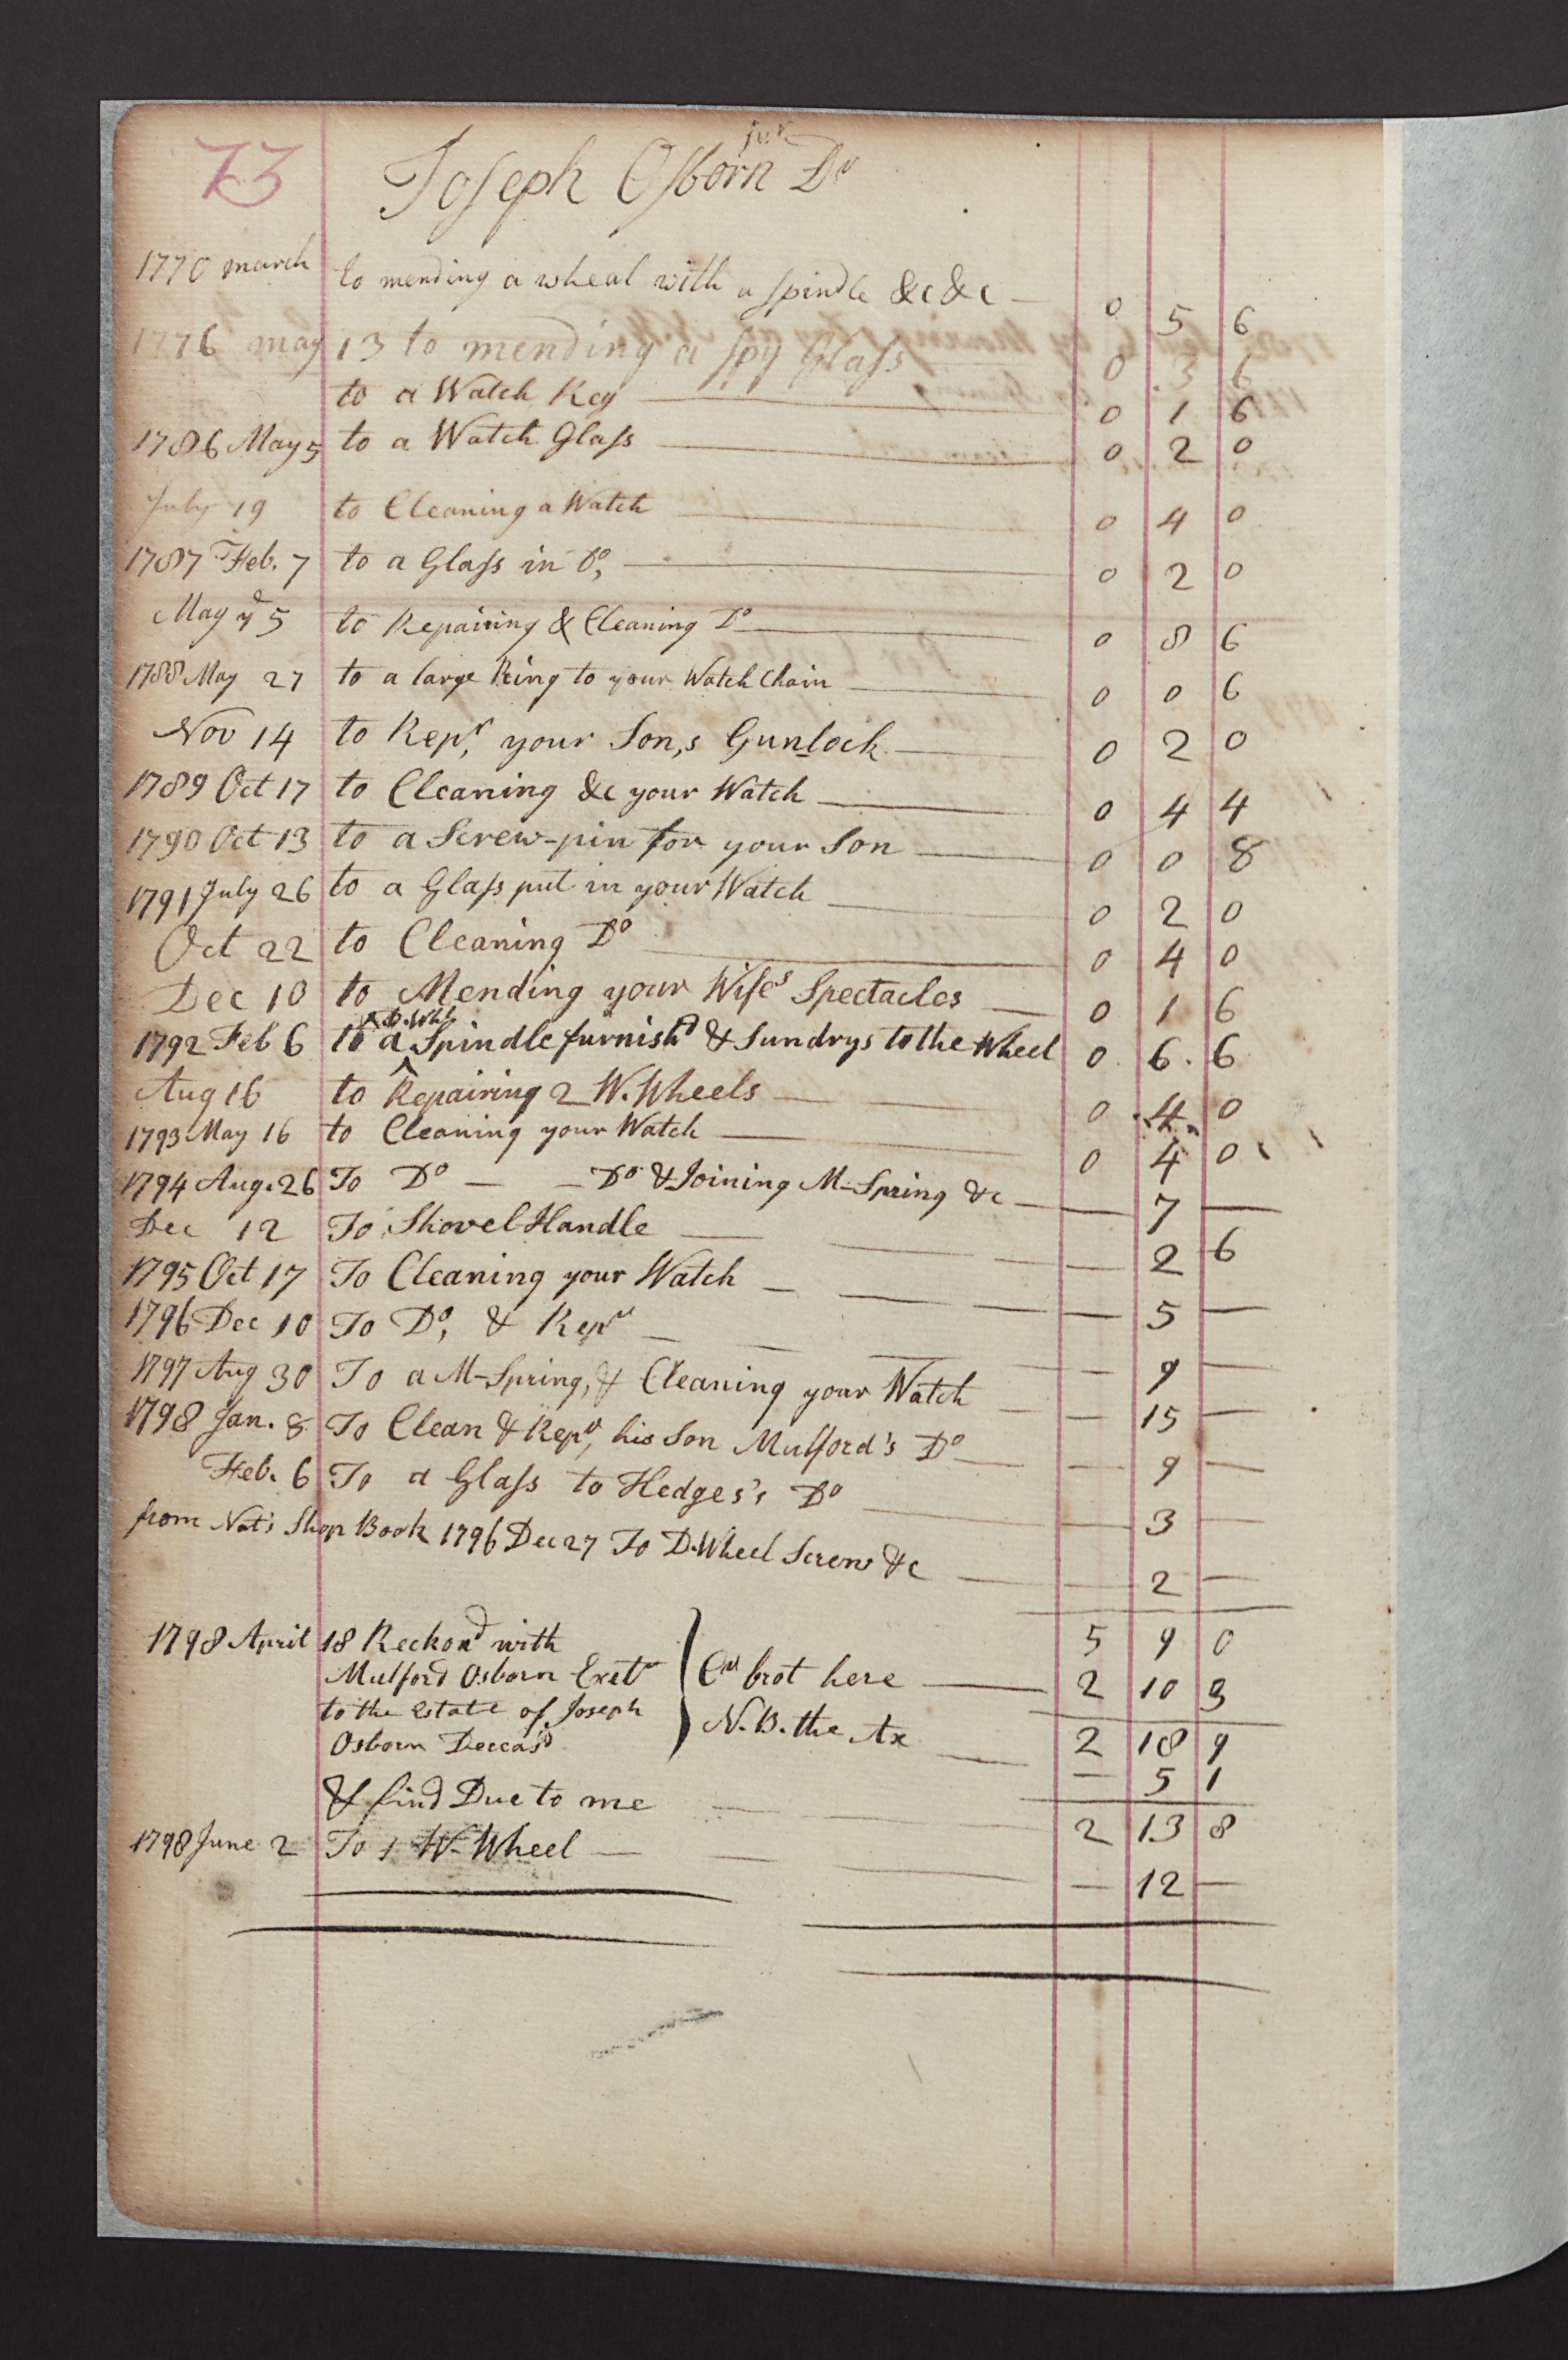 73
Joseph Osborn junr Dr
1770 march to mending a wheal with a spindle &c &c — 0 5 6
1776 may 13 to mending a spy Glass 0 3 6
to a Watch Key — 0 1 6
1786 May 5 to a Watch Glass — 0 2 0
July 19 to Cleaning a Watch — 0 4 0
1787 Feb. 7 to a Glass in Do, — 0 2 0
May 5 to Repairing & Cleaning Do — 0 8 6
1788 May 27 to a large Ring to your Watch Chain — 0 0 6
Nov 14 to Repr, your Son,s Gunlock — 0 2 0
1789 Oct 17 to Cleaning &c your Watch — 0 4 4
1790 Oct 13 to a Screw-pin for your Son — 0 0 8
1791 July 26 to a Glass put in your Watch — 0 2 0
Oct 22 to Cleaning Do — 0 4 0
Dec 10 to Mending your Wifes Spectacles — 0 1 6
1792 Feb 6 to a Spindle furnishd & Sundrys to the Wheel 0 6 6
Aug 16 to Repairing 2 W. Wheels — 0 4 0
1793 May 16 to Cleaning your Watch — 0 4 0
1794 Aug. 26 To Do — — Do & Joining M-Spring &c — — 7 —
Dec 12 To Shovel Handle — — 2 6
1795 Oct 17 To Cleaning your Watch — — 5 —
1796 Dec 10 To Do, & Repr — — 9 —
1797 Aug 30 To a M-Spring, & Cleaning your Watch — — 15 —
1798 Jan. 8 To Clean & Repr, his Son Mulford's Do — — 9 —
Feb. 6 To a Glass to Hedges's Do — — 3 —
from Nat's Shop Book 1796 Dec 27 To D. Wheel Screw &c — — 2 —
5 9 0
1798 April 18 Reckond with
Mulford Osborn Exetr
to the estate of Joseph
Osborn Deceasd
Cr brot here — 2 10 3
N.B. the Ax — 2 18 9
— 5 1
& find Due to me — 2 13 8
1798 June 2 To 1 W-Wheel — — 12 —